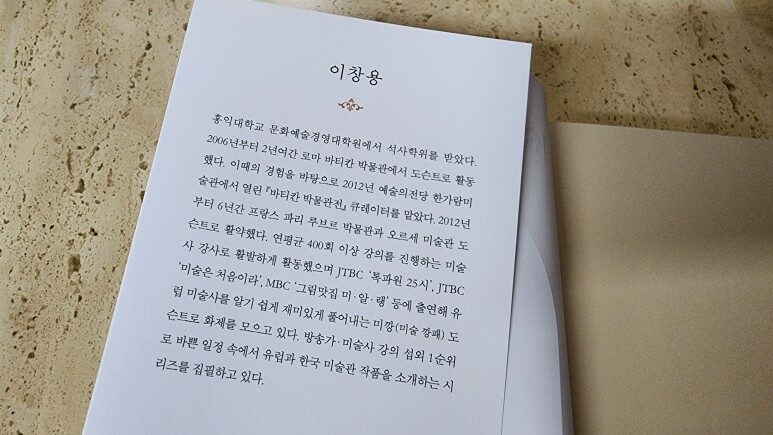 이창용
홍익대학교 문화예술경영대학원에서 석사학위를 받았다.
2006년부터 2년여간 로마 바티칸 박물관에서 도슨트로 활동
했다. 이때의 경험을 바탕으로 2012년 예술의전당 한가람미
술관에서 열린 『바티칸 박물관전』 큐레이터를 맡았다. 2012년
부터 6년간 프랑스 파리 루브르 박물관과 오르세 미술관 도
슨트로 활약했다. 연평균 400회 이상 강의를 진행하는 미술
사 강사로 활발하게 활동했으며 JTBC ‘톡파원 25시’, JTBC
‘미술은 처음이라’, MBC ‘그림맛집 미·알·랭’ 등에 출연해 유
럽 미술사를 알기 쉽게 재미있게 풀어내는 미깡(미술 깡패) 도
슨트로 화제를 모으고 있다. 방송가·미술사 강의 섭외 1순위
로 바쁜 일정 속에서 유럽과 한국 미술관 작품을 소개하는 시
리즈를 집필하고 있다.